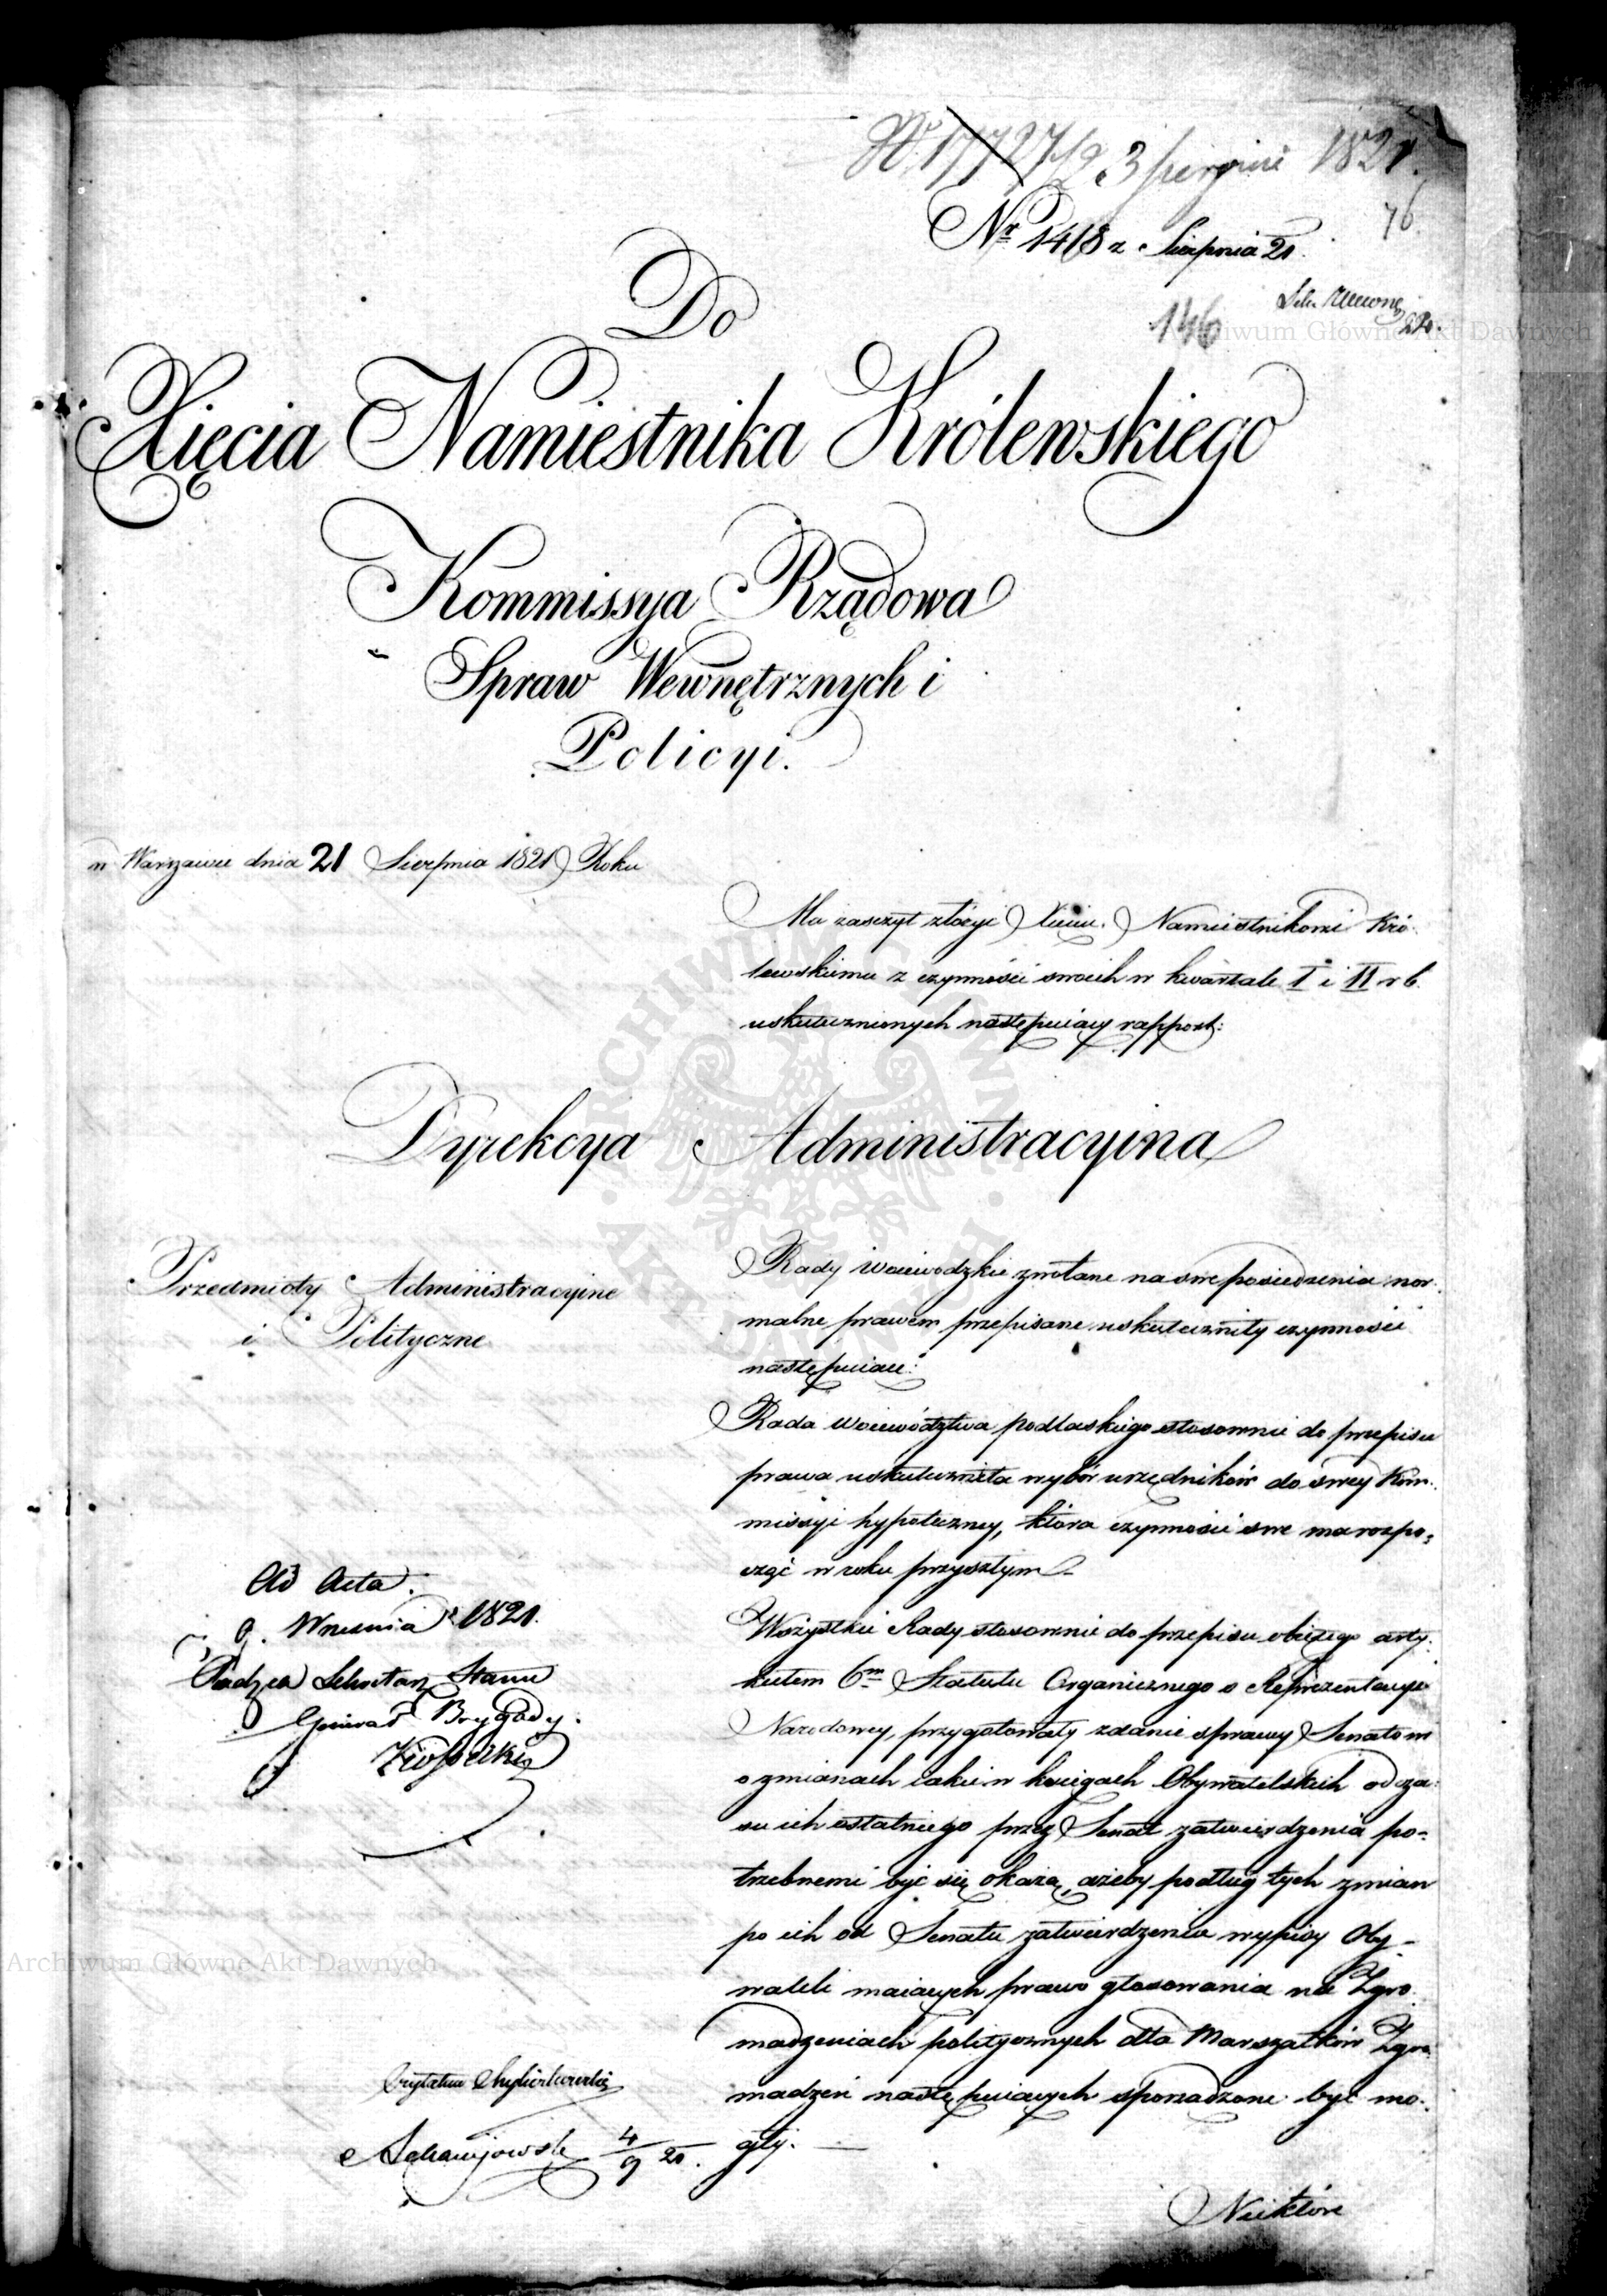 1821.
76.
Nr 1418 z Sierpnia 21.
146
Do
Xięcia Namiestnika Królewskiego
Kommissya Rządowa
Spraw Wewnętrznych i
Policyi.
w Warszawie dnia 21 Sierpnia 1821 Roku
Ma zaszczyt złożyć Xięciu Namiestnikowi Kró-
lewskiemu z czynności swoich w kwartale I i II r b.
uskutecznionych następuiący rapport:
Dyrekcya Administracyina
Przedmioty Administracyine
i Polityczne
Rady Woiewodzkie zwołane na swe posiedzenia nor-
malne prawem przepisane uskuteczniły czynności
następuiące:
Rada Woiewództwa podlaskiego stosownie do przepisu
prawa uskuteczniła wybór urzędników do swey Kom-
missyi hypoteczney, która czynności swe ma rozpo-
cząć w roku przyszłym.
Wszystkie Rady stosownie do przepisu obiętego arty-
kułem 6m Statutu Organicznego o Reprezentacyi
Narodowey, przygotowały zdanie sprawy Senatowi
o zmianach iakie w księgach Obywatelskich od cza-
su ich ostatniego przez Senat zatwierdzenia po-
trzebnemi być się okażą, ażeby podług tych zmian
po ich od Senatu zatwierdzenia wypisy Oby-
wateli maiących prawo głosowania na Zgro-
madzeniach politycznych dla Marszałków Zgro-
madzeń następuiących sporządzone być mo-
gły.
Niektóre
Ad Acta.
9. Września 1821.
Radzca Sekretarz Stanu
Generał Brygady.
Kossecki
4/9 21.
Archiwum Główne Akt Dawnych
Archiwum Główne Akt Dawnych